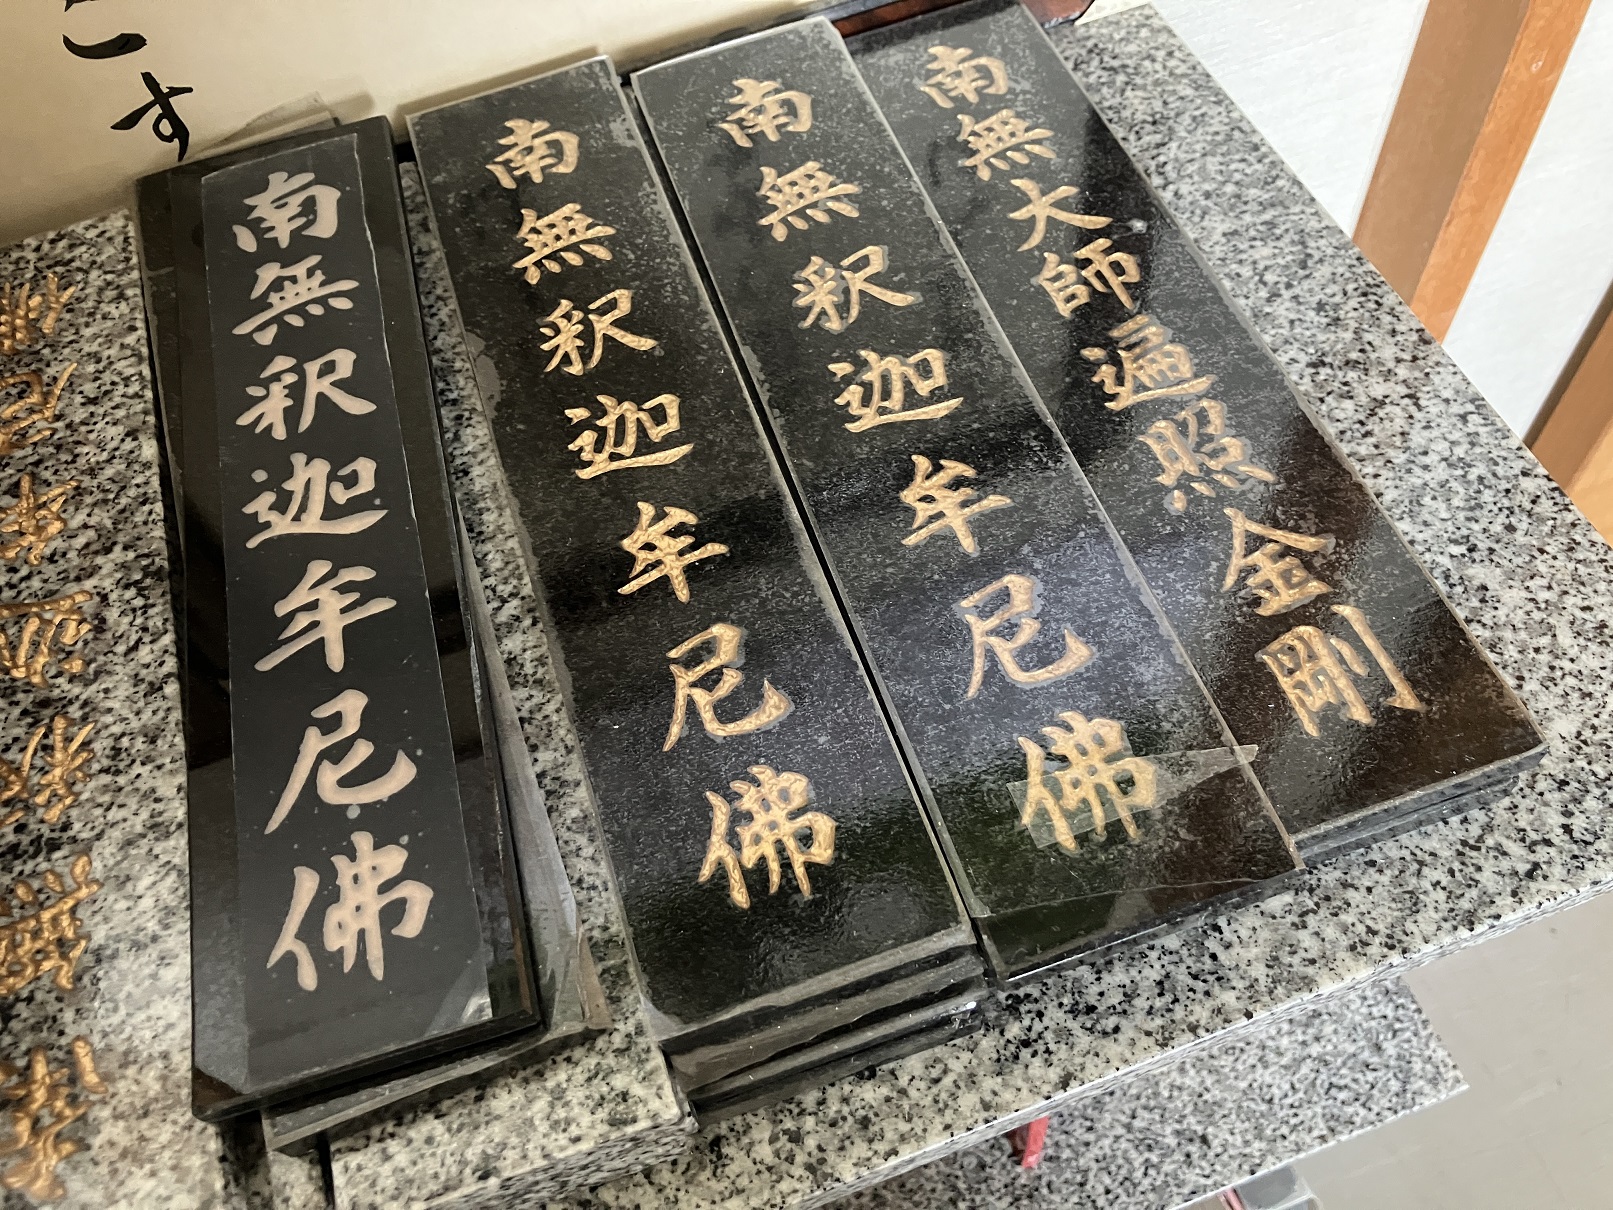 南無大師遍照金剛
南無釈迦牟尼佛
南無釈迦牟尼佛
南無釈迦牟尼佛
こす